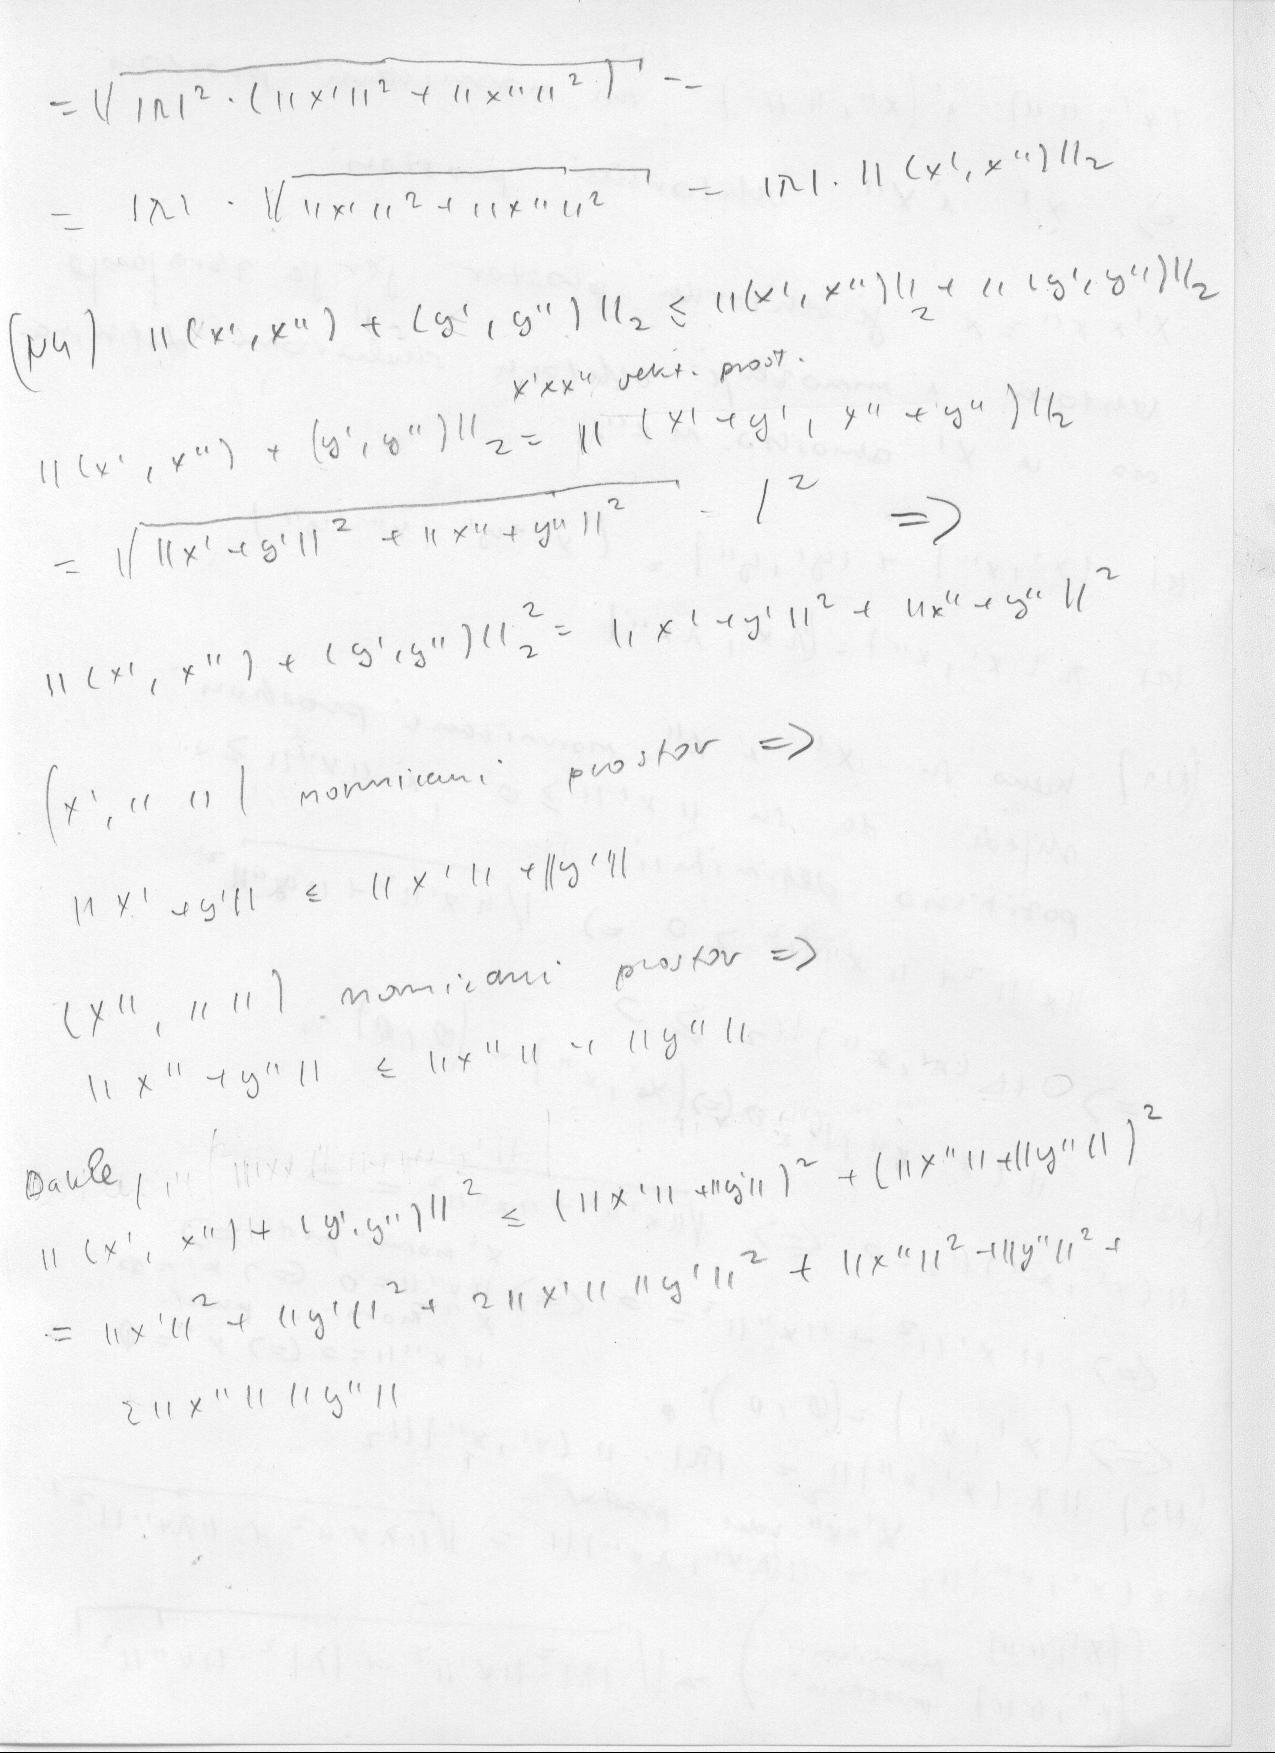 = √(|λ|² · (||x'||² + ||x''||²)) =
= |λ| · √(||x'||² + ||x''||²) = |λ| · ||(x', x'')||₂
(N4) ||(x', x'') + (y', y'')||₂ ≤ ||(x', x'')||₂ + ||(y', y'')||₂
x'xx'' vekt. prost.
||(x', x'') + (y', y'')||₂ = ||(x'+y', x''+y'')||₂
= √(||x'+y'||² + ||x''+y''||²) /² =>
||(x', x'') + (y', y'')||₂² = ||x'+y'||² + ||x''+y''||²
(X', || ||) normirani prostor =>
||x'+y'|| ≤ ||x'|| + ||y'||
(X'', || ||) normirani prostor =>
||x''+y''|| ≤ ||x''|| + ||y''||
Dakle,
||(x', x'') + (y', y'')||² ≤ (||x'|| + ||y'||)² + (||x''|| + ||y''||)²
= ||x'||² + ||y'||² + 2||x'|| ||y'||² + ||x''||² + ||y''||² +
2||x''|| ||y''||